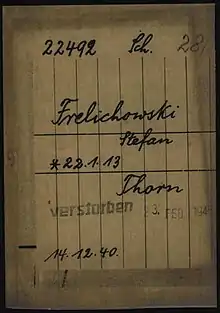 22492 Sch. 28.
Frelichowski
Stefan
* 22.1.13
Thorn
verstorben 23. FEB. 1945
14.12.40.